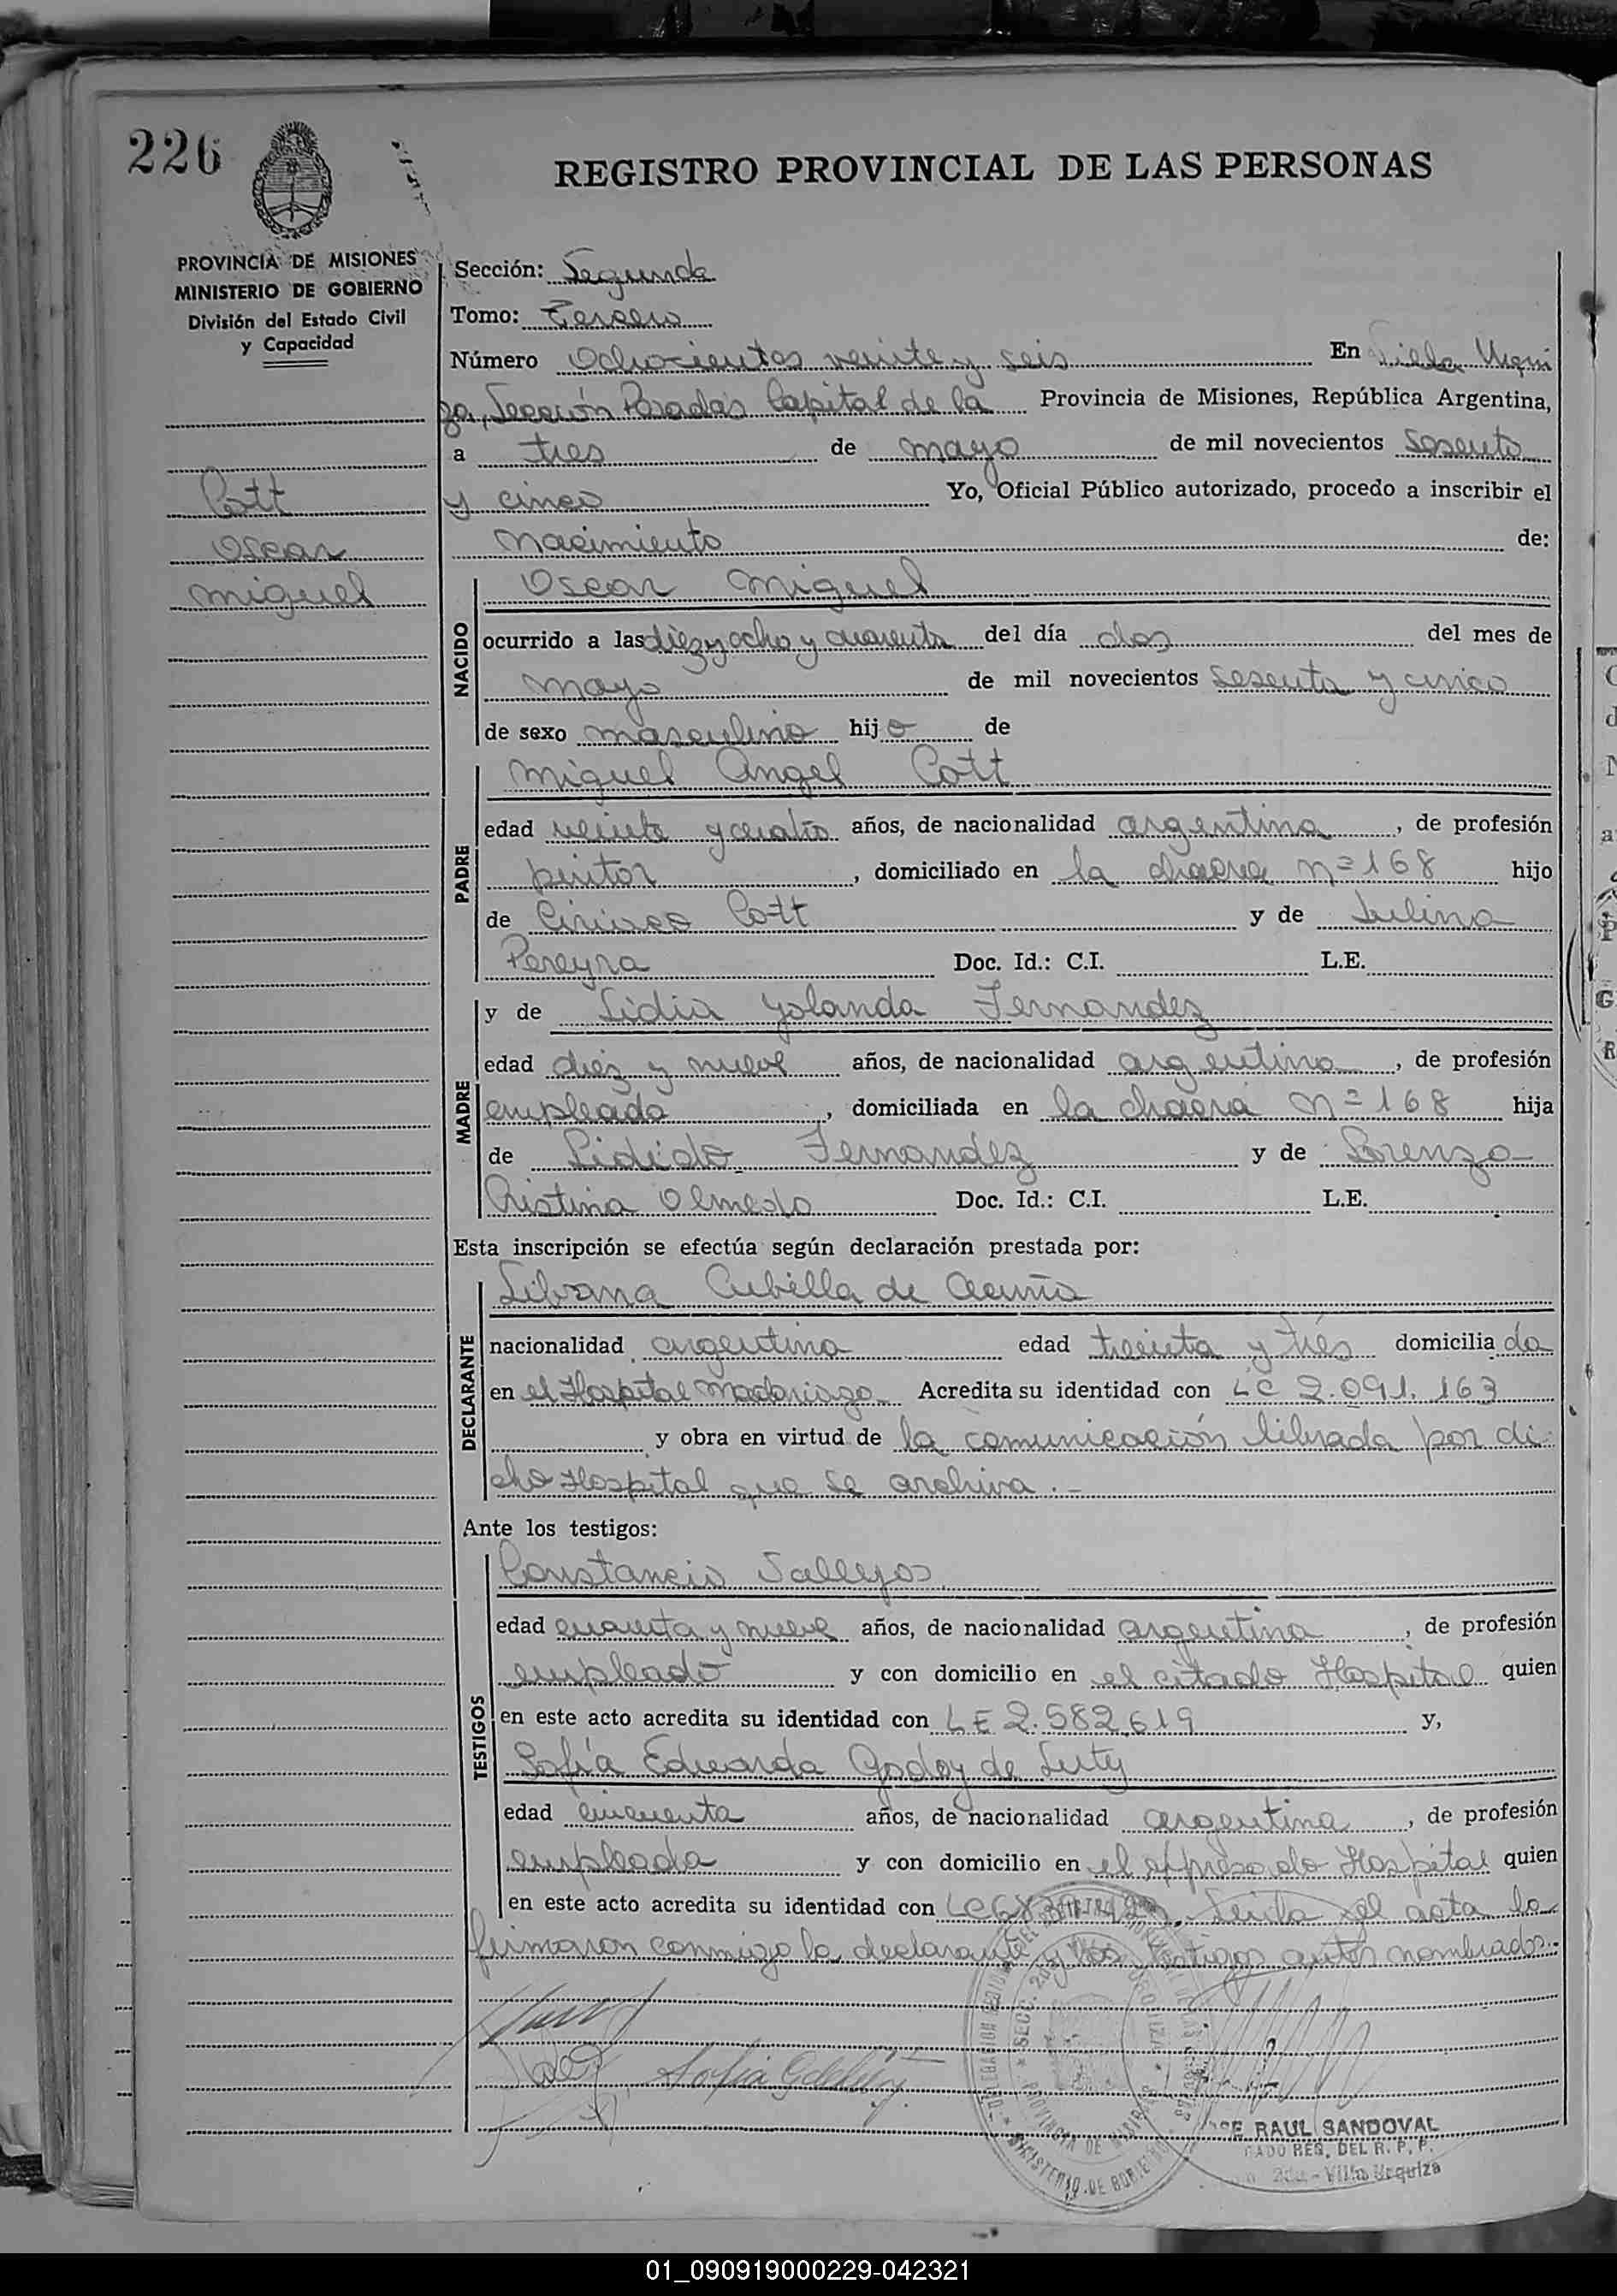 226
REGISTRO PROVINCIAL DE LAS PERSONAS
PROVINCIA DE MISIONES
MINISTERIO DE GOBIERNO
División del Estado Civil
y Capacidad
Cott
Oscar
Miguel
Sección: Segunda
Tomo: Tercero
Número Ochocientos veinte y seis En Villa Urqui
za, Sección Posadas Capital de la Provincia de Misiones, República Argentina,
a tres de mayo de mil novecientos sesenta
y cinco Yo, Oficial Público autorizado, procedo a inscribir el
nacimiento de:
NACIDO
Oscar Miguel
ocurrido a las diez y ocho y cuarenta del día dos del mes de
mayo de mil novecientos sesenta y cinco
de sexo masculino hijo de
PADRE
Miguel Angel Cott
edad veinte y cuatro años, de nacionalidad argentina, de profesión
pintor, domiciliado en la chacra nº 168 hijo
de Ciriaco Cott y de Julina
Pereyra Doc. Id.: C.I. L.E.
MADRE
y de Lidia Yolanda Fernandez
edad diez y nueve años, de nacionalidad argentina, de profesión
empleada, domiciliada en la chacra nº 168 hija
de Fernandez y de Lorenza
Cristina Olmedo Doc. Id.: C.I. L.E.
Esta inscripción se efectúa según declaración prestada por:
DECLARANTE
Silvana Cubilla de Acuña
nacionalidad argentina edad treinta y tres domiciliada
en el Hospital Madariaga Acredita su identidad con LC 2.091.163
y obra en virtud de la comunicación librada por di
cho Hospital que se archiva.-
Ante los testigos:
TESTIGOS
Constancio Vallejos
edad cuarenta y nueve años, de nacionalidad argentina, de profesión
empleado y con domicilio en el citado Hospital quien
en este acto acredita su identidad con LE 2.582.619 y,
Sofía Eduarda Godoy de
edad cincuenta años, de nacionalidad argentina, de profesión
empleada y con domicilio en el Hospital quien
en este acto acredita su identidad con LC Leida el acta la
firmaron conmigo la declarante y los testigos antes nombrados.-
Sofia
RAUL SANDOVAL
REG. DEL R. P. P.
2da - Villa Urquiza
01_090919000229-042321